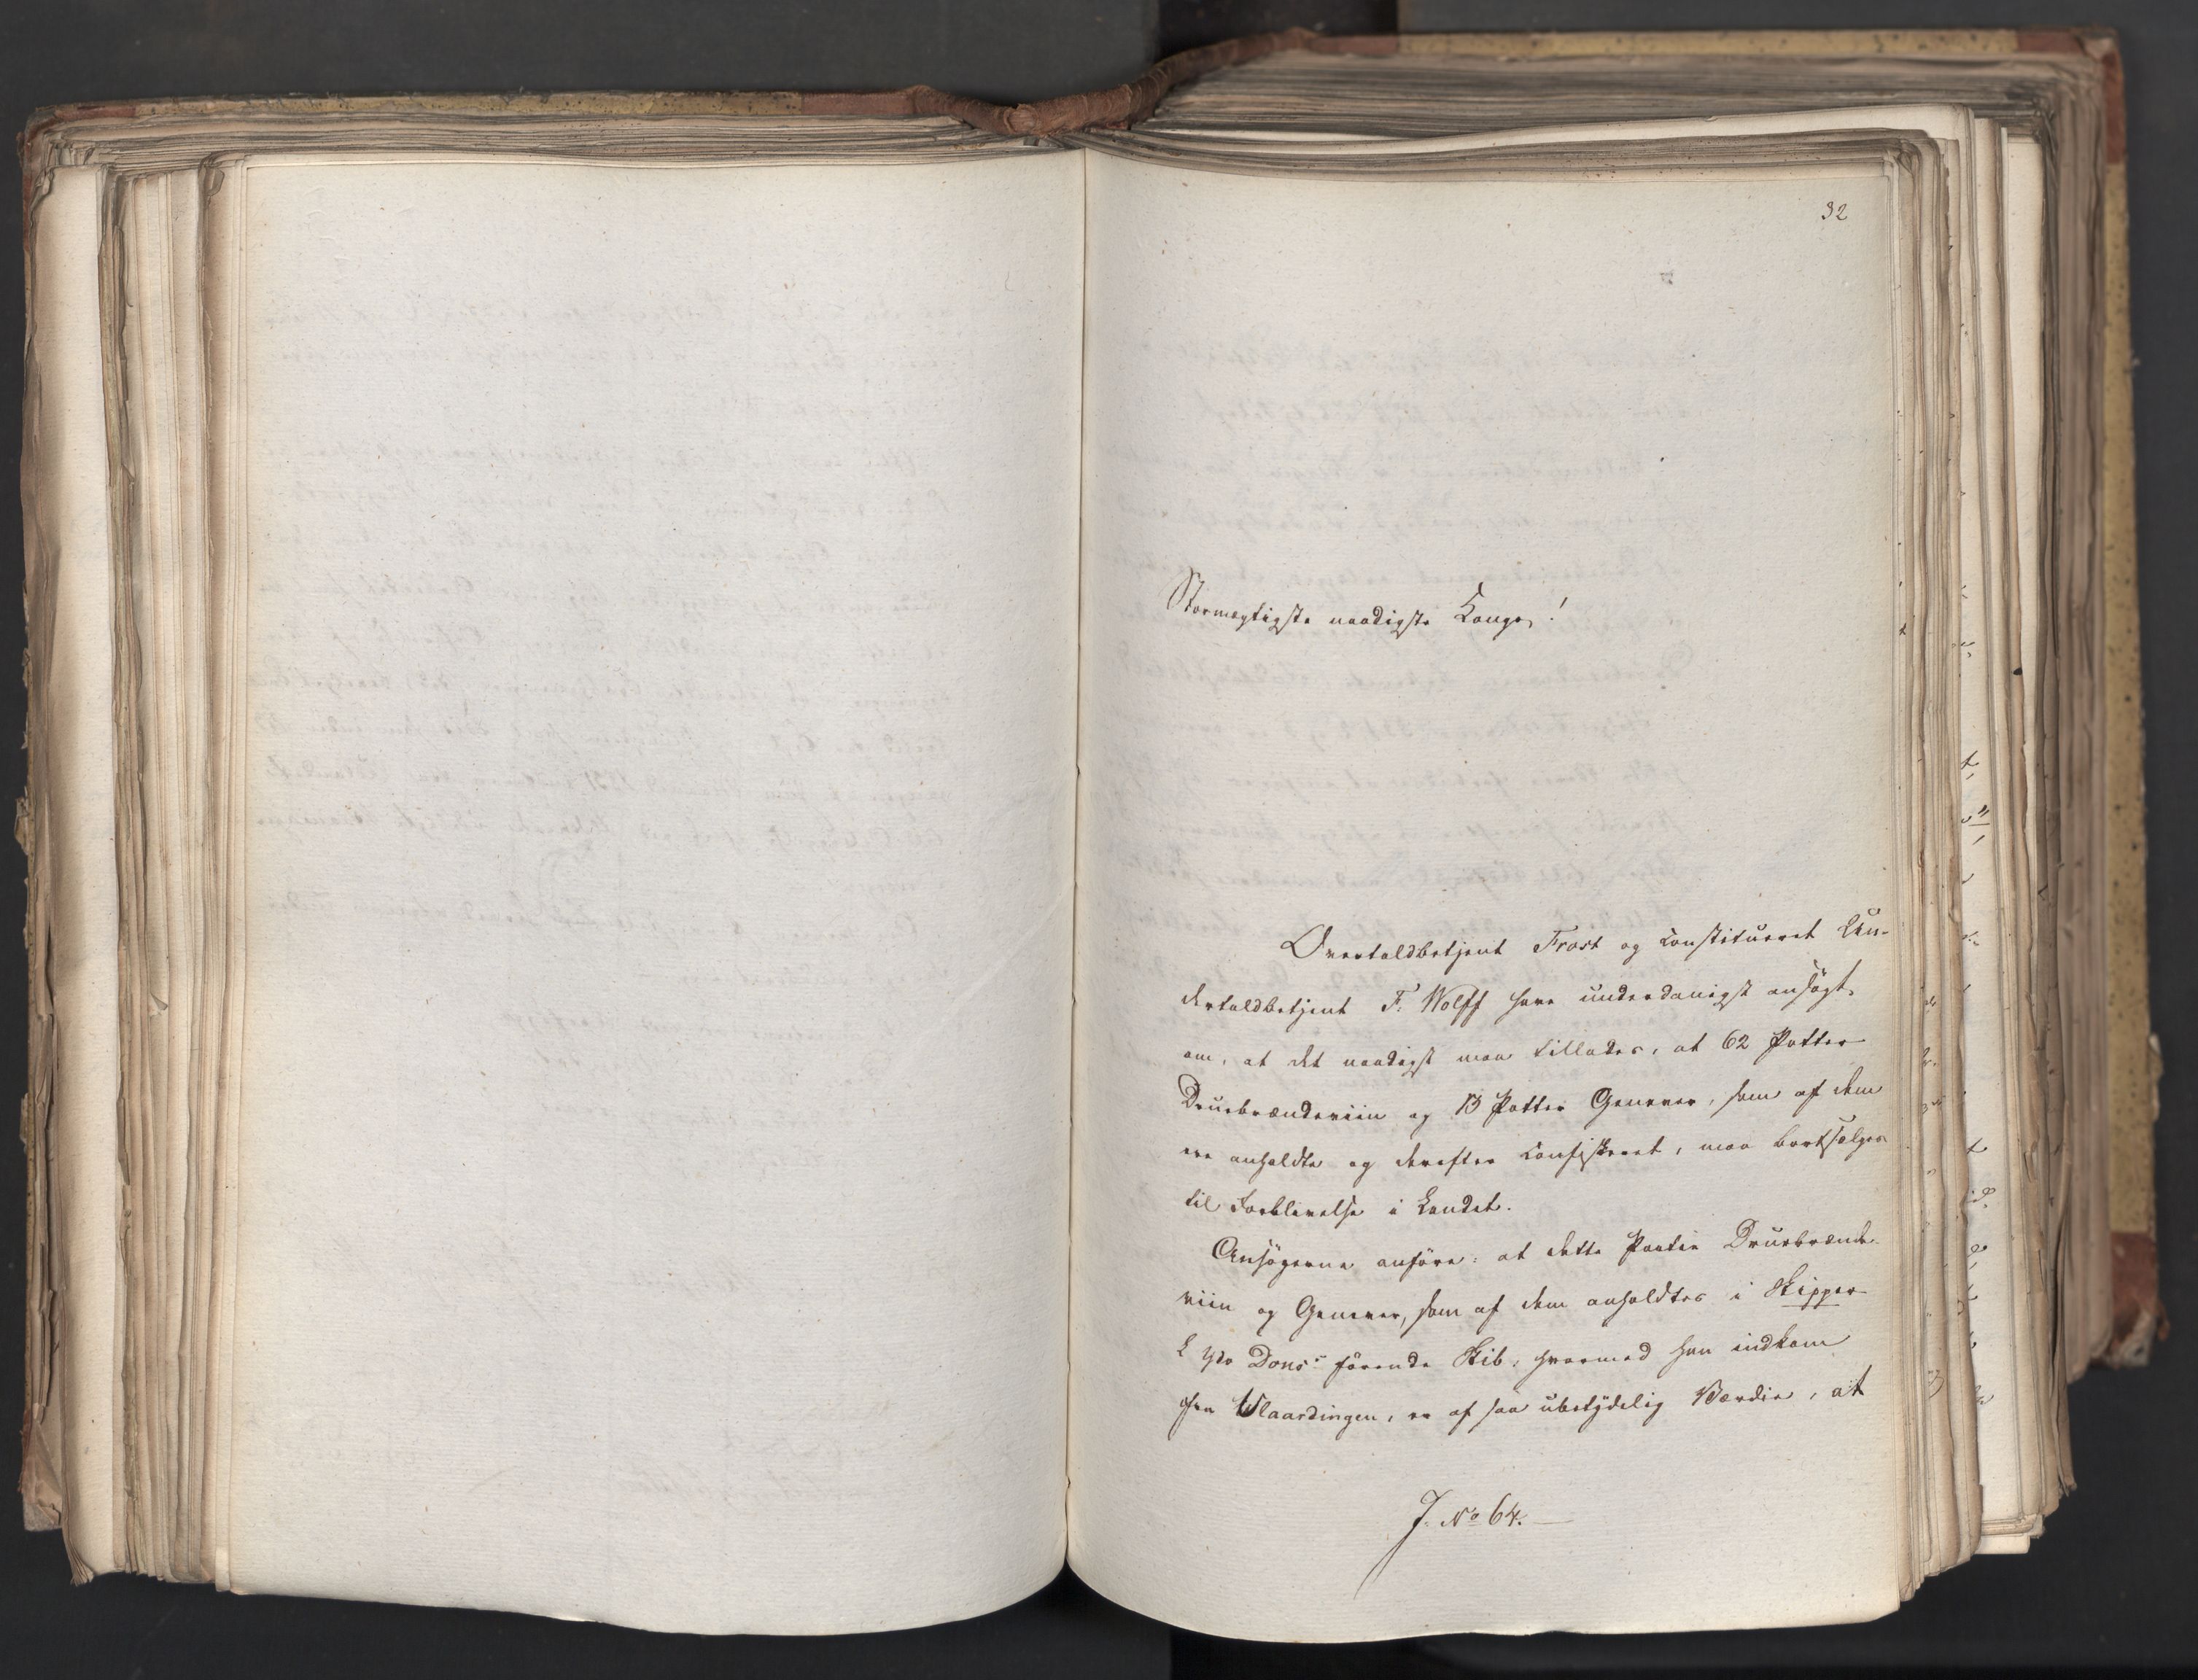 32
Stormægtigste naadigste Konge!
Overtoldbetjent Frost og constitueret Un-
dertoldbetjent F. Wolff have underdanigst ansögt
om, at det naadigst maa tillades, at 62 Potter
Druebrændeviin og 13 Potter Genever, som af dem
ere anholdte og derefter confiskeret, maa bortsælges
til Forblivelse i Landet.
Ansögerne anföre: at dette Partie Druebrænde-
viin og Genever, som af dem anholdtes i Skipper
Dons's förende Skib, hvormed han indkom
fra Vlaardingen, er af saa ubetydelig Værdie, at
J. No 64.